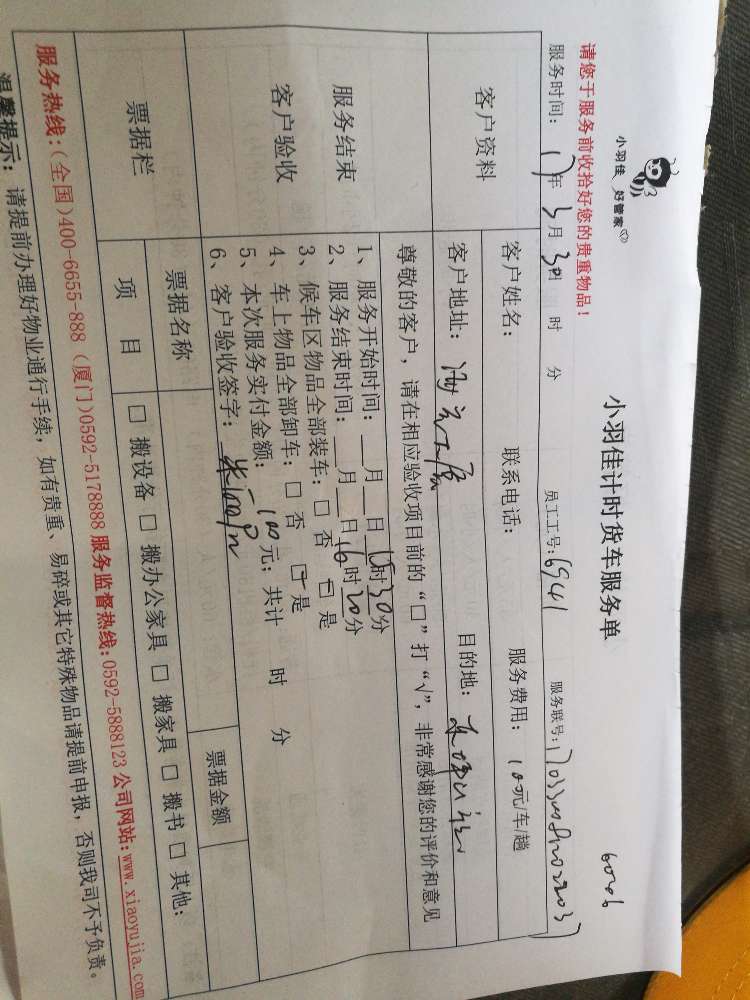 小羽佳 好管家
小羽佳计时货车服务单
请您于服务前收拾好您的贵重物品！
服务时间：17年3月30日 时 分 员工工号：6941 服务联号：
客户资料
客户姓名： 联系电话： 服务费用：100元/车/趟
客户地址： 目的地：
服务结束
客户验收
尊敬的客户，请在相应验收项目前的“□”打“√”，非常感谢您的评价和意见
1、服务开始时间：__月__日15时30分
2、服务结束时间：__月__日16时20分
3、候车区物品全部装车：□ 否 □ 是
4、车上物品全部卸车：□ 否 □ 是
5、本次服务实付金额：100元；共计 时 分
6、客户验收签字：
票据栏
票据名称 票据金额
项 目 □ 搬设备 □ 搬办公家具 □ 搬家具 □ 搬书 □ 其他：
服务热线：(全国)400-6655-888 (厦门)0592-5178888 服务监督热线：0592-5888123 公司网站：www.xiaoyujia.com
温馨提示：请提前办理好物业通行手续，如有贵重、易碎或其它特殊物品请提前申报，否则我司不予负责。